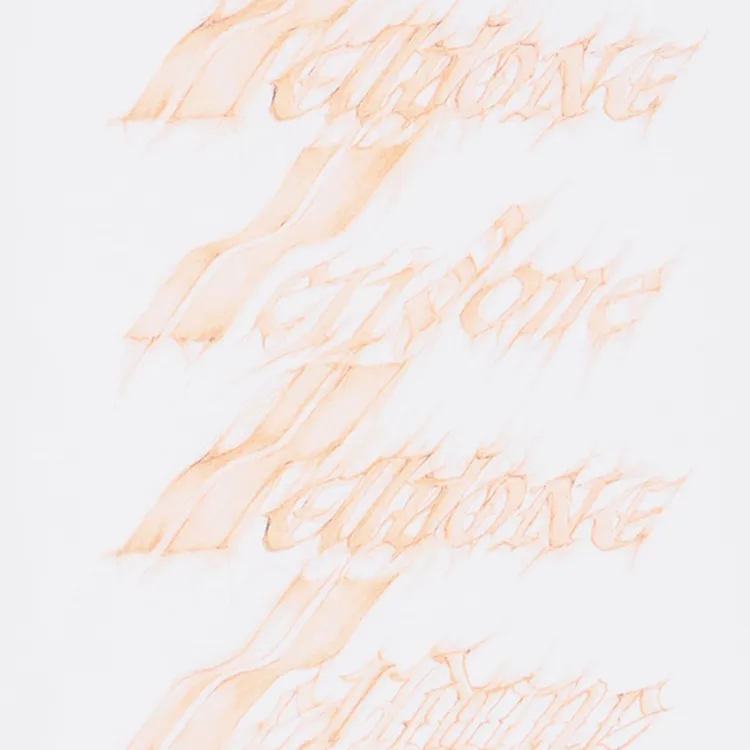 Helldone
Helldone
Helldone
Helldone